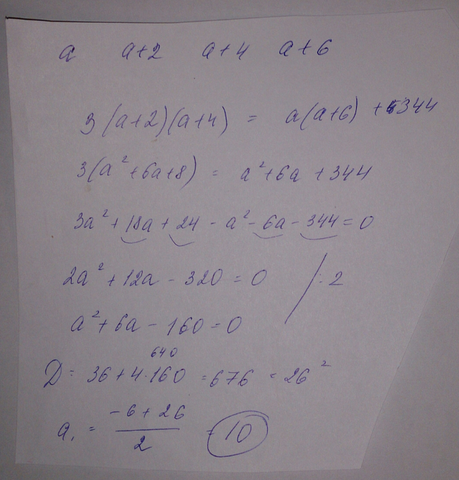 a a+2 a+4 a+6
3(a+2)(a+4) = a(a+6) + 344
3(a²+6a+8) = a²+6a+344
3a²+18a+24-a²-6a-344=0
2a²+12a-320=0 /:2
a²+6a-160=0
640
D= 36+4·160 =676 =26²
a₁ = (-6+26)/2 = 10